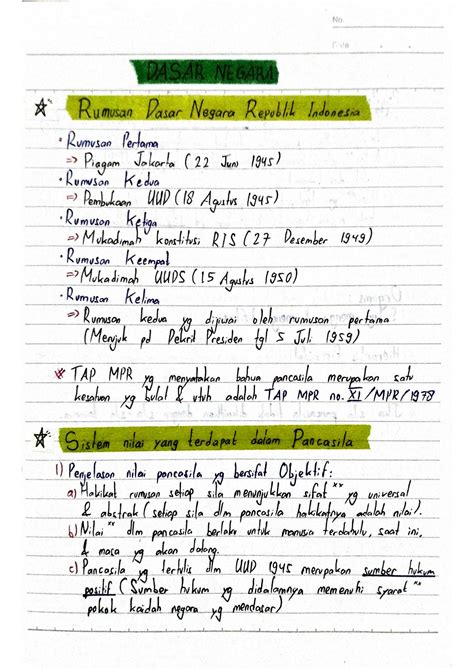 No.
DASAR NEGARA
Rumusan Dasar Negara Republik Indonesia
• Rumusan Pertama
=> Piagam Jakarta (22 Juni 1945)
• Rumusan Kedua
=> Pembukaan UUD (18 Agustus 1945)
• Rumusan Ketiga
=> Mukadimah konstitusi RIS (27 Desember 1949)
• Rumusan Keempat
=> Mukadimah UUDS (15 Agustus 1950)
• Rumusan Kelima
=> Rumusan kedua yg dijiwai oleh rumusan pertama
(Merujuk pd Dekrit Presiden tgl 5 Juli 1959)
* TAP MPR yg menyatakan bahwa pancasila merupakan satu
kesatuan yg bulat & utuh adalah TAP MPR no. XI/MPR/1978
Sistem nilai yang terdapat dalam Pancasila
1) Penjelasan nilai pancasila yg bersifat Objektif:
a) Hakikat rumusan setiap sila menunjukkan sifat xx yg universal
& abstrak (setiap sila dlm pancasila hakikatnya adalah nilai).
b) Nilai xx dlm pancasila berlaku untuk manusia terdahulu, saat ini,
& masa yg akan datang.
c) Pancasila yg tertulis dlm UUD 1945 merupakan sumber hukum
positif (Sumber hukum yg didalamnya memenuhi syarat xx
pokok kaidah negara yg mendasar)